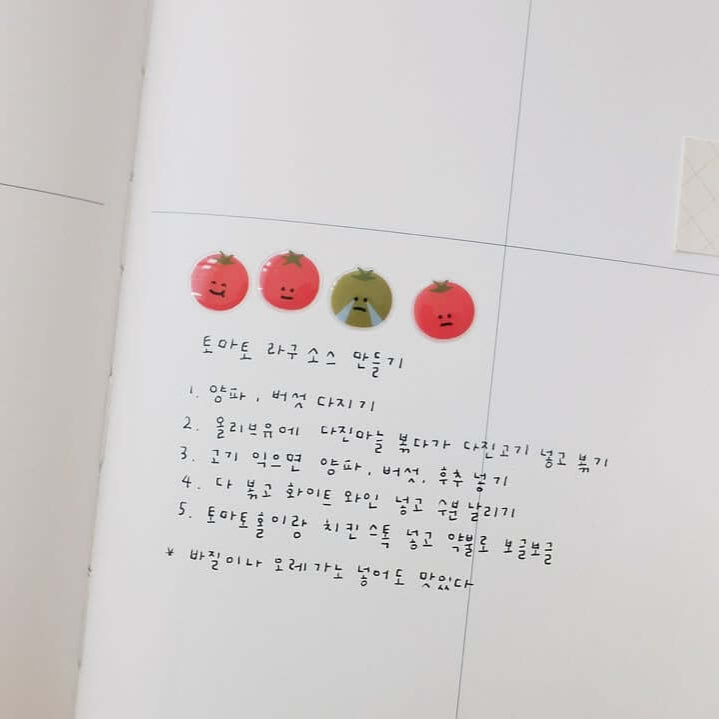 토마토 라구소스 만들기
1. 양파, 버섯 다지기
2. 올리브유에 다진마늘 볶다가 다진고기 넣고 볶기
3. 고기 익으면 양파, 버섯, 후추 넣기
4. 다 볶고 화이트 와인 넣고 수분 날리기
5. 토마토홀이랑 치킨스톡 넣고 약불로 보글보글
* 바질이나 오레가노 넣어도 맛있다